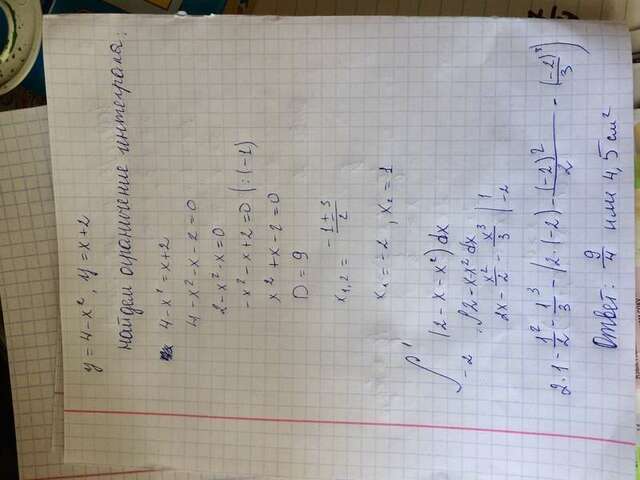 y = 4 - x², y = x + 2
найдем ограничение интеграла:
4 - x² = x + 2
4 - x² - x - 2 = 0
2 - x² - x = 0
-x² - x + 2 = 0 (: (-1)
x² + x - 2 = 0
D = 9
x₁,₂ = (-1 ± 3)/2
x₁ = -2, x₂ = 1
∫₋₂¹ (2 - x - x²) dx
∫2 - x - x² dx
2x - x²/2 - x³/3 |₋₂¹
2·1 - 1²/2 - 1³/3 - (2·(-2) - (-2)²/2 - (-2)³/3)
Ответ: 9/4 или 4,5 см²